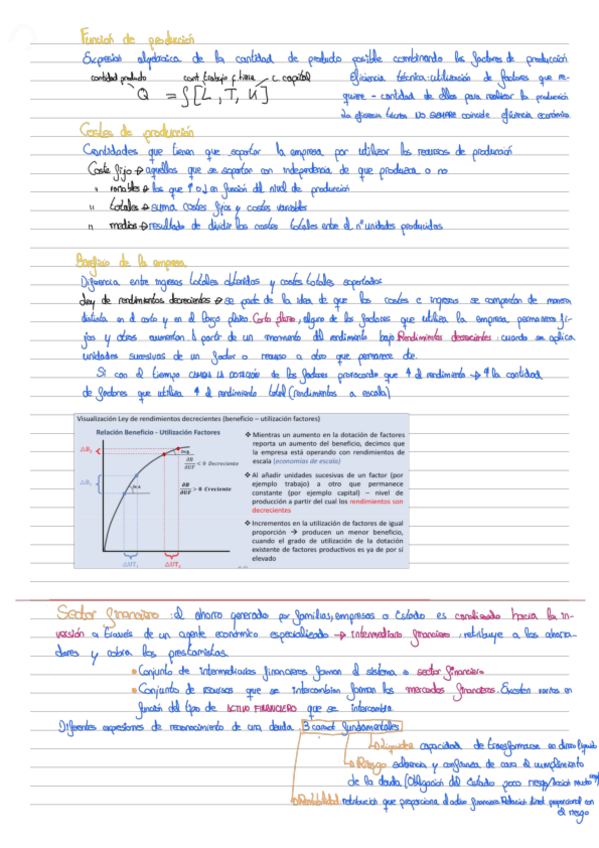 Función de producción
Expresión algebraica de la cantidad de producto posible combinando los factores de producción
cantidad producto cant. trabajo f. tierra c. capital Eficiencia técnica: utilización de factores que re-
Q = ∫[L, T, K] quiere - cantidad de ellos para realizar la producción
La eficiencia técnica NO SIEMPRE coincide eficiencia económica
Costes de producción
Cantidades que tienen que soportar la empresa por utilizar los recursos de producción
Coste fijo → aquellos que se soportan con independencia de que produzca o no
" variables → los que ↑ o ↓ en función del nivel de producción
" totales → suma costes fijos y costes variables
" medios → resultado de dividir los costes totales entre el nº unidades producidas
Beneficio de la empresa
Diferencia entre ingresos totales obtenidos y costes totales soportados
Ley de rendimientos decrecientes → se parte de la idea de que los costes e ingresos se comportan de manera
distinta en el corto y en el largo plazo. Corto plazo, alguno de los factores que utiliza la empresa permanece fi-
jos y otros aumentan. A partir de un momento del rendimiento bajo Rendimientos decrecientes: cuando se aplica
unidades sucesivas de un factor o recurso a otro que permanece cte.
Si con el tiempo CAMBIA LA DOTACIÓN de los factores provocando que ↑ el rendimiento → ↑ la cantidad
de factores que utiliza ↑ el rendimiento total (rendimientos a escala)
Visualización Ley de rendimientos decrecientes (beneficio – utilización factores)
Relación Beneficio - Utilización Factores
❖ Mientras un aumento en la dotación de factores
reporta un aumento del beneficio, decimos que
la empresa está operando con rendimientos de
escala (economías de escala)
❖ Al añadir unidades sucesivas de un factor (por
ejemplo trabajo) a otro que permanece
constante (por ejemplo capital) – nivel de
producción a partir del cual los rendimientos son
decrecientes
❖ Incrementos en la utilización de factores de igual
proporción → producen un menor beneficio,
cuando el grado de utilización de la dotación
existente de factores productivos es ya de por sí
elevado
< 0 Decreciente
> 0 Creciente
Sector financiero: el ahorro generado por familias, empresas o Estado es canalizado hacia la in-
versión a través de un agente económico especializado → intermediario financiero, retribuye a los ahorra-
dores y cobra los prestamistas.
• Conjunto de intermediarios financieros forman el sistema o sector financiero
• Conjunto de recursos que se intercambian forman los mercados financieros. Existen varios en
función del tipo de ACTIVO FINANCIERO que se intercambia
Diferentes expresiones de reconocimiento de una deuda. 3 caract fundamentales
→ Liquidez capacidad de transformarse en dinero líquido
→ Riesgo solvencia y confianza de cara al cumplimiento
de la deuda (Obligación del Estado poco riesgo
→ Rentabilidad: retribución que proporciona el activo financiero. Relación direct. proporcional con
el riesgo